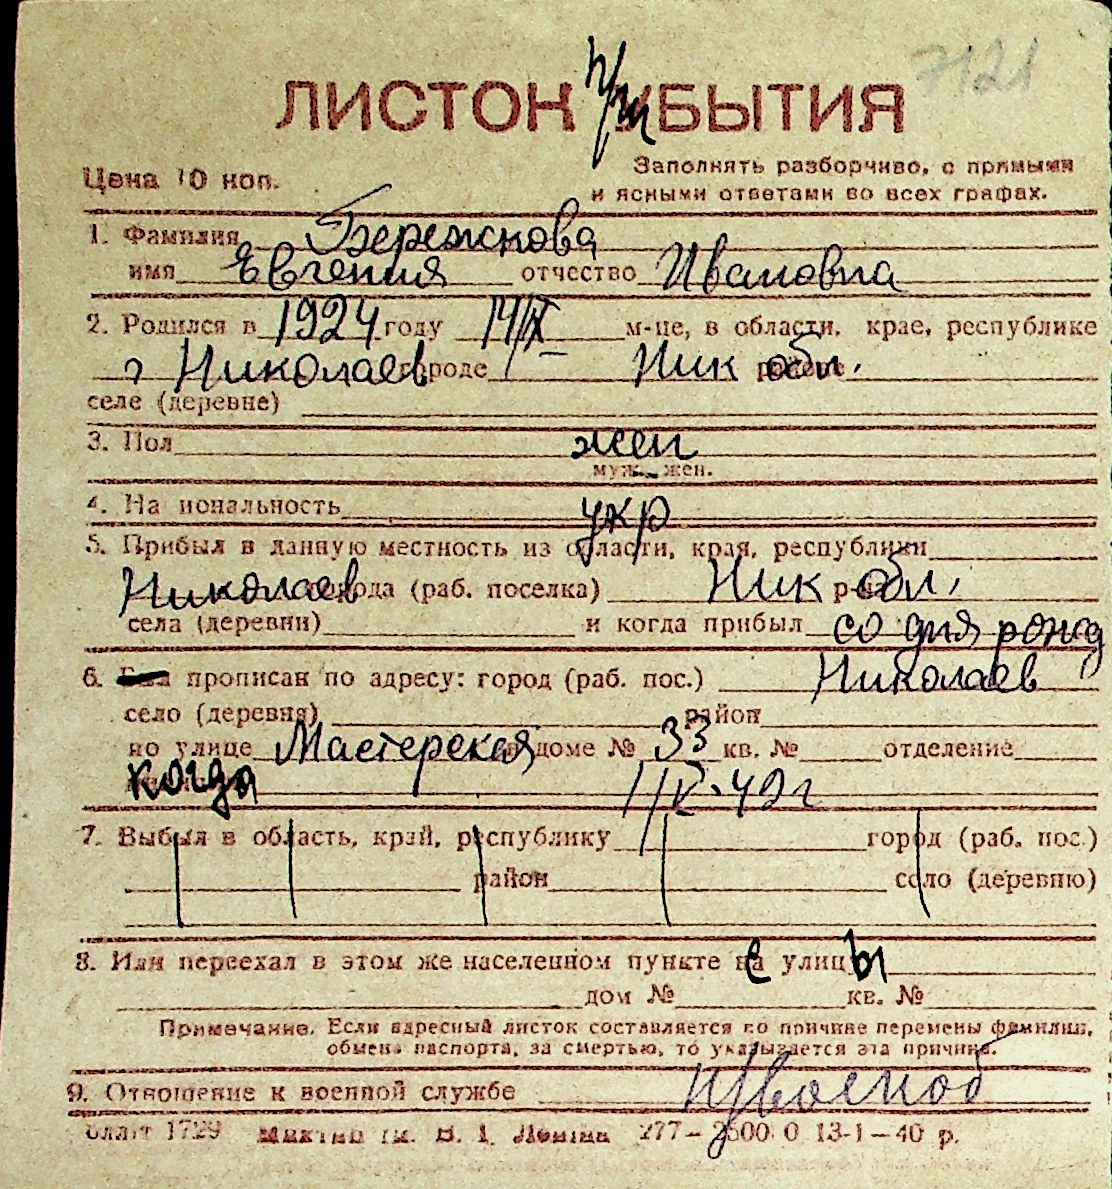 7121
ЛИСТОК при БЫТИЯ
Цена 10 коп.
Заполнять разборчиво, с прямыми
и ясными ответами во всех графах.
1. Фамилия Бережнова
имя Евгения отчество Ивановна
2. Родился в 1924 году 14/IX м-це, в области, крае, республике
г Николаев городе Ник обл.
селе (деревне)
3. Пол жен
муж. жен.
4. На иональность укр
5. Прибыл в данную местность из области, края, республики
Николаев города (раб. поселка) Ник обл.
села (деревни) и когда прибыл со дня рожд
6. прописан по адресу: город (раб. пос.) Николаев
село (деревня) район
по улице Мастерская доме № 33 кв. № отделение
когда 1/IV-49г
7. Выбыл в область, край, республику город (раб. пос.)
район село (деревню)
8. Или переехал в этом же населенном пункте с улицы
дом № кв. №
Примечание. Если адресный листок составляется по причине перемены фамилии,
обмена паспорта, за смертью, то указывается эта причина.
9. Отношение к военной службе н/военоб
1729 им. В. І. Леніна 277— 13-1—40 р.